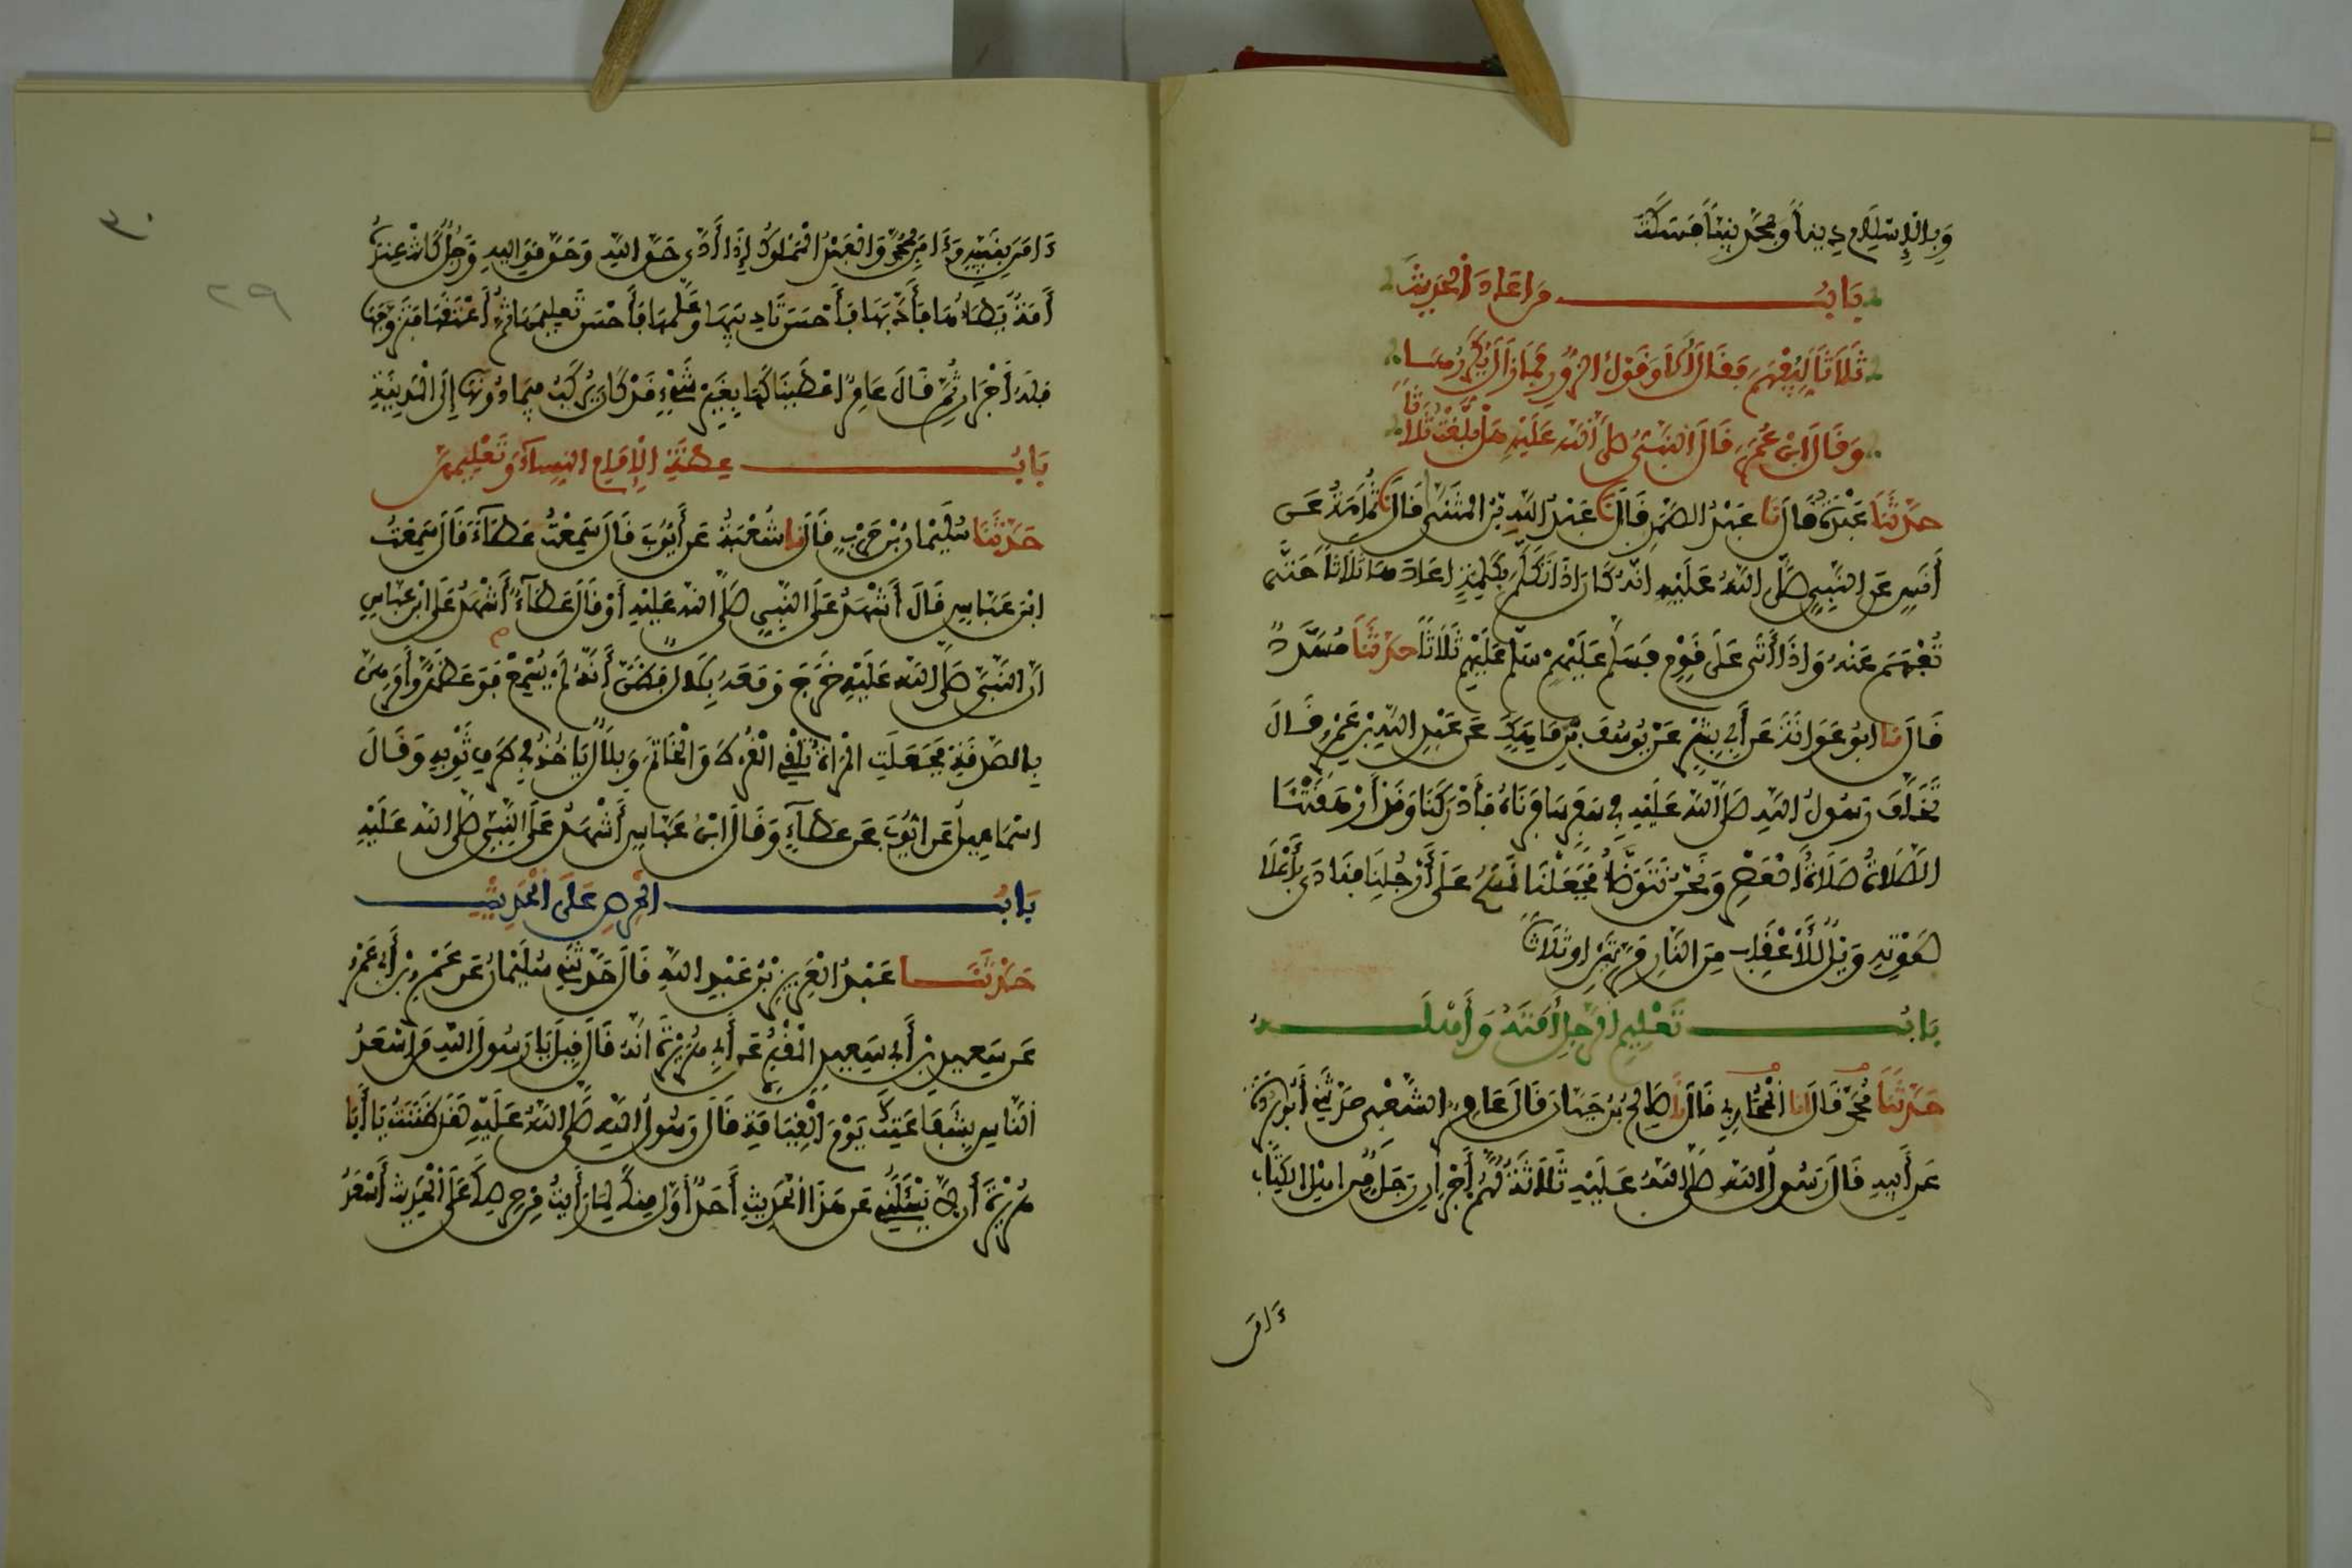 وَبِالْإِسْلَامِ دِيناً وَبِمُحَمَّدٍ نَبِيّاً فَسَكَتَ
بَابُ مَن اعَادَ الْحَدِيثَ
ثَلَاثاً لِيُفْهَمَ فَقَالَ أَلَا وَقَوْلُ الزُّورِ فَمَا زَالَ يُكَرِّرُهَا
وَقَالَ ابْنُ عُمَرَ قَالَ النَّبِيُّ صَلَّى اللَّهُ عَلَيْهِ هَلْ بَلَّغْتُ ثَلَاثاً
حَدَّثَنَا عَبْدَةُ قَالَ نَا عَبْدُ الصَّمَدِ قَالَ نَا عَبْدُ اللَّهِ بْنُ الْمُثَنَّى قَالَ نَا ثُمَامَةُ عَن
أَنَسٍ عَنِ النَّبِيِّ صَلَّى اللَّهُ عَلَيْهِ انَّهُ كَانَ اذَا تَكَلَّمَ بِكَلِمَةٍ اعَادَهَا ثَلَاثاً حَتَّى
تُفْهَمَ عَنْهُ وَاذَا أَتَى عَلَى قَوْمٍ فَسَلَّمَ عَلَيْهِمْ سَلَّمَ عَلَيْهِمْ ثَلَاثاً حَدَّثَنَا مُسَدَّدٌ
قَالَ نَا ابُو عَوَانَةَ عَن أَبِي بِشْرٍ عَنْ يُوسُفَ بْنِ مَاهَكَ عَن عَبْدِ اللَّهِ بْنِ عَمْرٍو قَالَ
تَخَلَّفَ رَسُولُ اللَّهِ صَلَّى اللَّهُ عَلَيْهِ فِي سَفَرٍ سَافَرْنَاهُ فَأَدْرَكَنَا وَقَدْ أَرْهَقْنَا
الصَّلَاةَ صَلَاةَ الْعَصْرِ وَنَحْنُ نَتَوَضَّأُ فَجَعَلْنَا نَمْسَحُ عَلَى أَرْجُلِنَا فَنَادَى بِأَعْلَا
صَوْتِهِ وَيْلٌ لِلْأَعْقَابِ مِنَ النَّارِ مَرَّتَيْنِ او ثَلَاثاً
بَابُ تَعْلِيمِ الرَّجُلِ أَمَتَهُ وَأَهْلَهُ
حَدَّثَنَا مُحَمَّدٌ قَالَ أنا الْمُحَارِبِي قَالَ نَا صَالِحُ بْنُ حَيَّانَ قَالَ عَامِرٌ الشَّعْبِي حَدَّثَنِي أَبُو بُرْدَةَ
عَن أَبِيهِ قَالَ رَسُولُ اللَّهِ صَلَّى اللَّهُ عَلَيْهِ ثَلَاثَةٌ لَهُمْ أَجْرَانِ رَجُلٌ مِن اهْلِ الْكِتَابِ
ءَامَنَ
٣٠
٢٩
ءَامَنَ بِنَبِيِّهِ وَءَامَنَ بِمُحَمَّدٍ وَالْعَبْدُ الْمَمْلُوكُ إِذَا أَدَّى حَقَّ اللَّهِ وَحَقَّ مَوَالِيهِ وَرَجُلٌ كَانَتْ عِنْدَهُ
أَمَةٌ يَطَأُهَا فَأَدَّبَهَا فَأَحْسَنَ تَادِيبَهَا وَعَلَّمَهَا فَأَحْسَنَ تَعْلِيمَهَا ثُمَّ أَعْتَقَهَا فَتَزَوَّجَهَا
فَلَهُ أَجْرَانِ ثُمَّ قَالَ عَامِرٌ اعْطَيْنَاكَهَا بِغَيْرِ شَيْءٍ قَدْ كَانَ يُرْكَبُ فِيمَا دُونَهَا إِلَى الْمَدِينَةِ
بَابُ عِظَةِ الْإِمَامِ النِّسَاءَ وَتَعْلِيمِهِنَّ
حَدَّثَنَا سُلَيْمَانُ بْنُ حَرْبٍ قَالَ نا شُعْبَةُ عَن أَيُّوبَ قَالَ سَمِعْتُ عَطَاءً قَالَ سَمِعْتُ
ابْنَ عَبَّاسٍ قَالَ أَشْهَدُ عَلَى النَّبِيِّ صَلَّى اللَّهُ عَلَيْهِ أَوْ قَالَ عَطَاءٌ أَشْهَدُ عَلَى ابْنِ عَبَّاسٍ
انَّ النَّبِيَّ صَلَّى اللَّهُ عَلَيْهِ خَرَجَ وَمَعَهُ بِلَالٌ فَظَنَّ أَنَّهُ لَمْ يُسْمِعْ فَوَعَظَهُنَّ وَأَمَرَهُنَّ
بِالصَّدَقَةِ فَجَعَلَتِ الْمَرْأَةُ تُلْقِي الْقُرْطَ وَالْخَاتَمَ وَبِلَالٌ يَاخُذُ فِي طَرَفِ ثَوْبِهِ وَقَالَ
اسْمَاعِيلُ عَن ايُّوبَ عَن عَطَاءٍ وَقَالَ ابْنُ عَبَّاسٍ أَشْهَدُ عَلَى النَّبِيِّ صَلَّى اللَّهُ عَلَيْهِ
بَابُ الْحِرْصِ عَلَى الْحَدِيثِ
حَدَّثَنَا عَبْدُ الْعَزِيزِ بْنُ عَبْدِ اللَّهِ قَالَ حَدَّثَنِي سُلَيْمَانُ عَن عَمْرِو بْنِ أَبِي عَمْرٍو
عَن سَعِيدِ بْنِ أَبِي سَعِيدٍ الْمَقْبُرِيِّ عَن أَبِي هُرَيْرَةَ انَّهُ قَالَ قِيلَ يَا رَسُولَ اللَّهِ مَن أَسْعَدُ
النَّاسِ بِشَفَاعَتِكَ يَوْمَ الْقِيَامَةِ قَالَ رَسُولُ اللَّهِ صَلَّى اللَّهُ عَلَيْهِ لَقَدْ ظَنَنْتُ يَا أَبَا
هُرَيْرَةَ أَن لَا يَسْئَلَنِي عَن هَذَا الْحَدِيثِ أَحَدٌ أَوَّلَ مِنْكَ لِمَا رَأَيْتُ مِن حِرْصِكَ عَلَى الْحَدِيثِ أَسْعَدُ